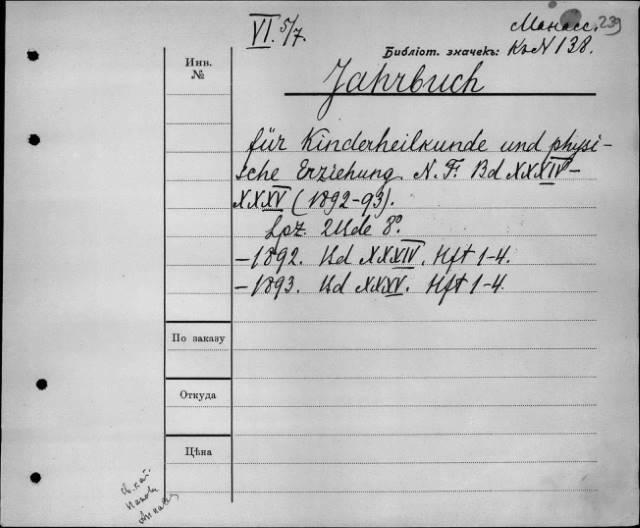 VI. 5/7.
Манасс. 239
Библіот. значекъ: К. N 138.
Инв.
№
Jahrbuch
für Kinderheilkunde und physi-
sche Erziehung. N. F. Bd XXXIV-
XXXV (1892-93).
Lpz. 2 Bde 8°.
- 1892. Bd XXXIV. Hft 1-4.
- 1893. Bd XXXV. Hft 1-4.
По заказу
Откуда
Цѣна